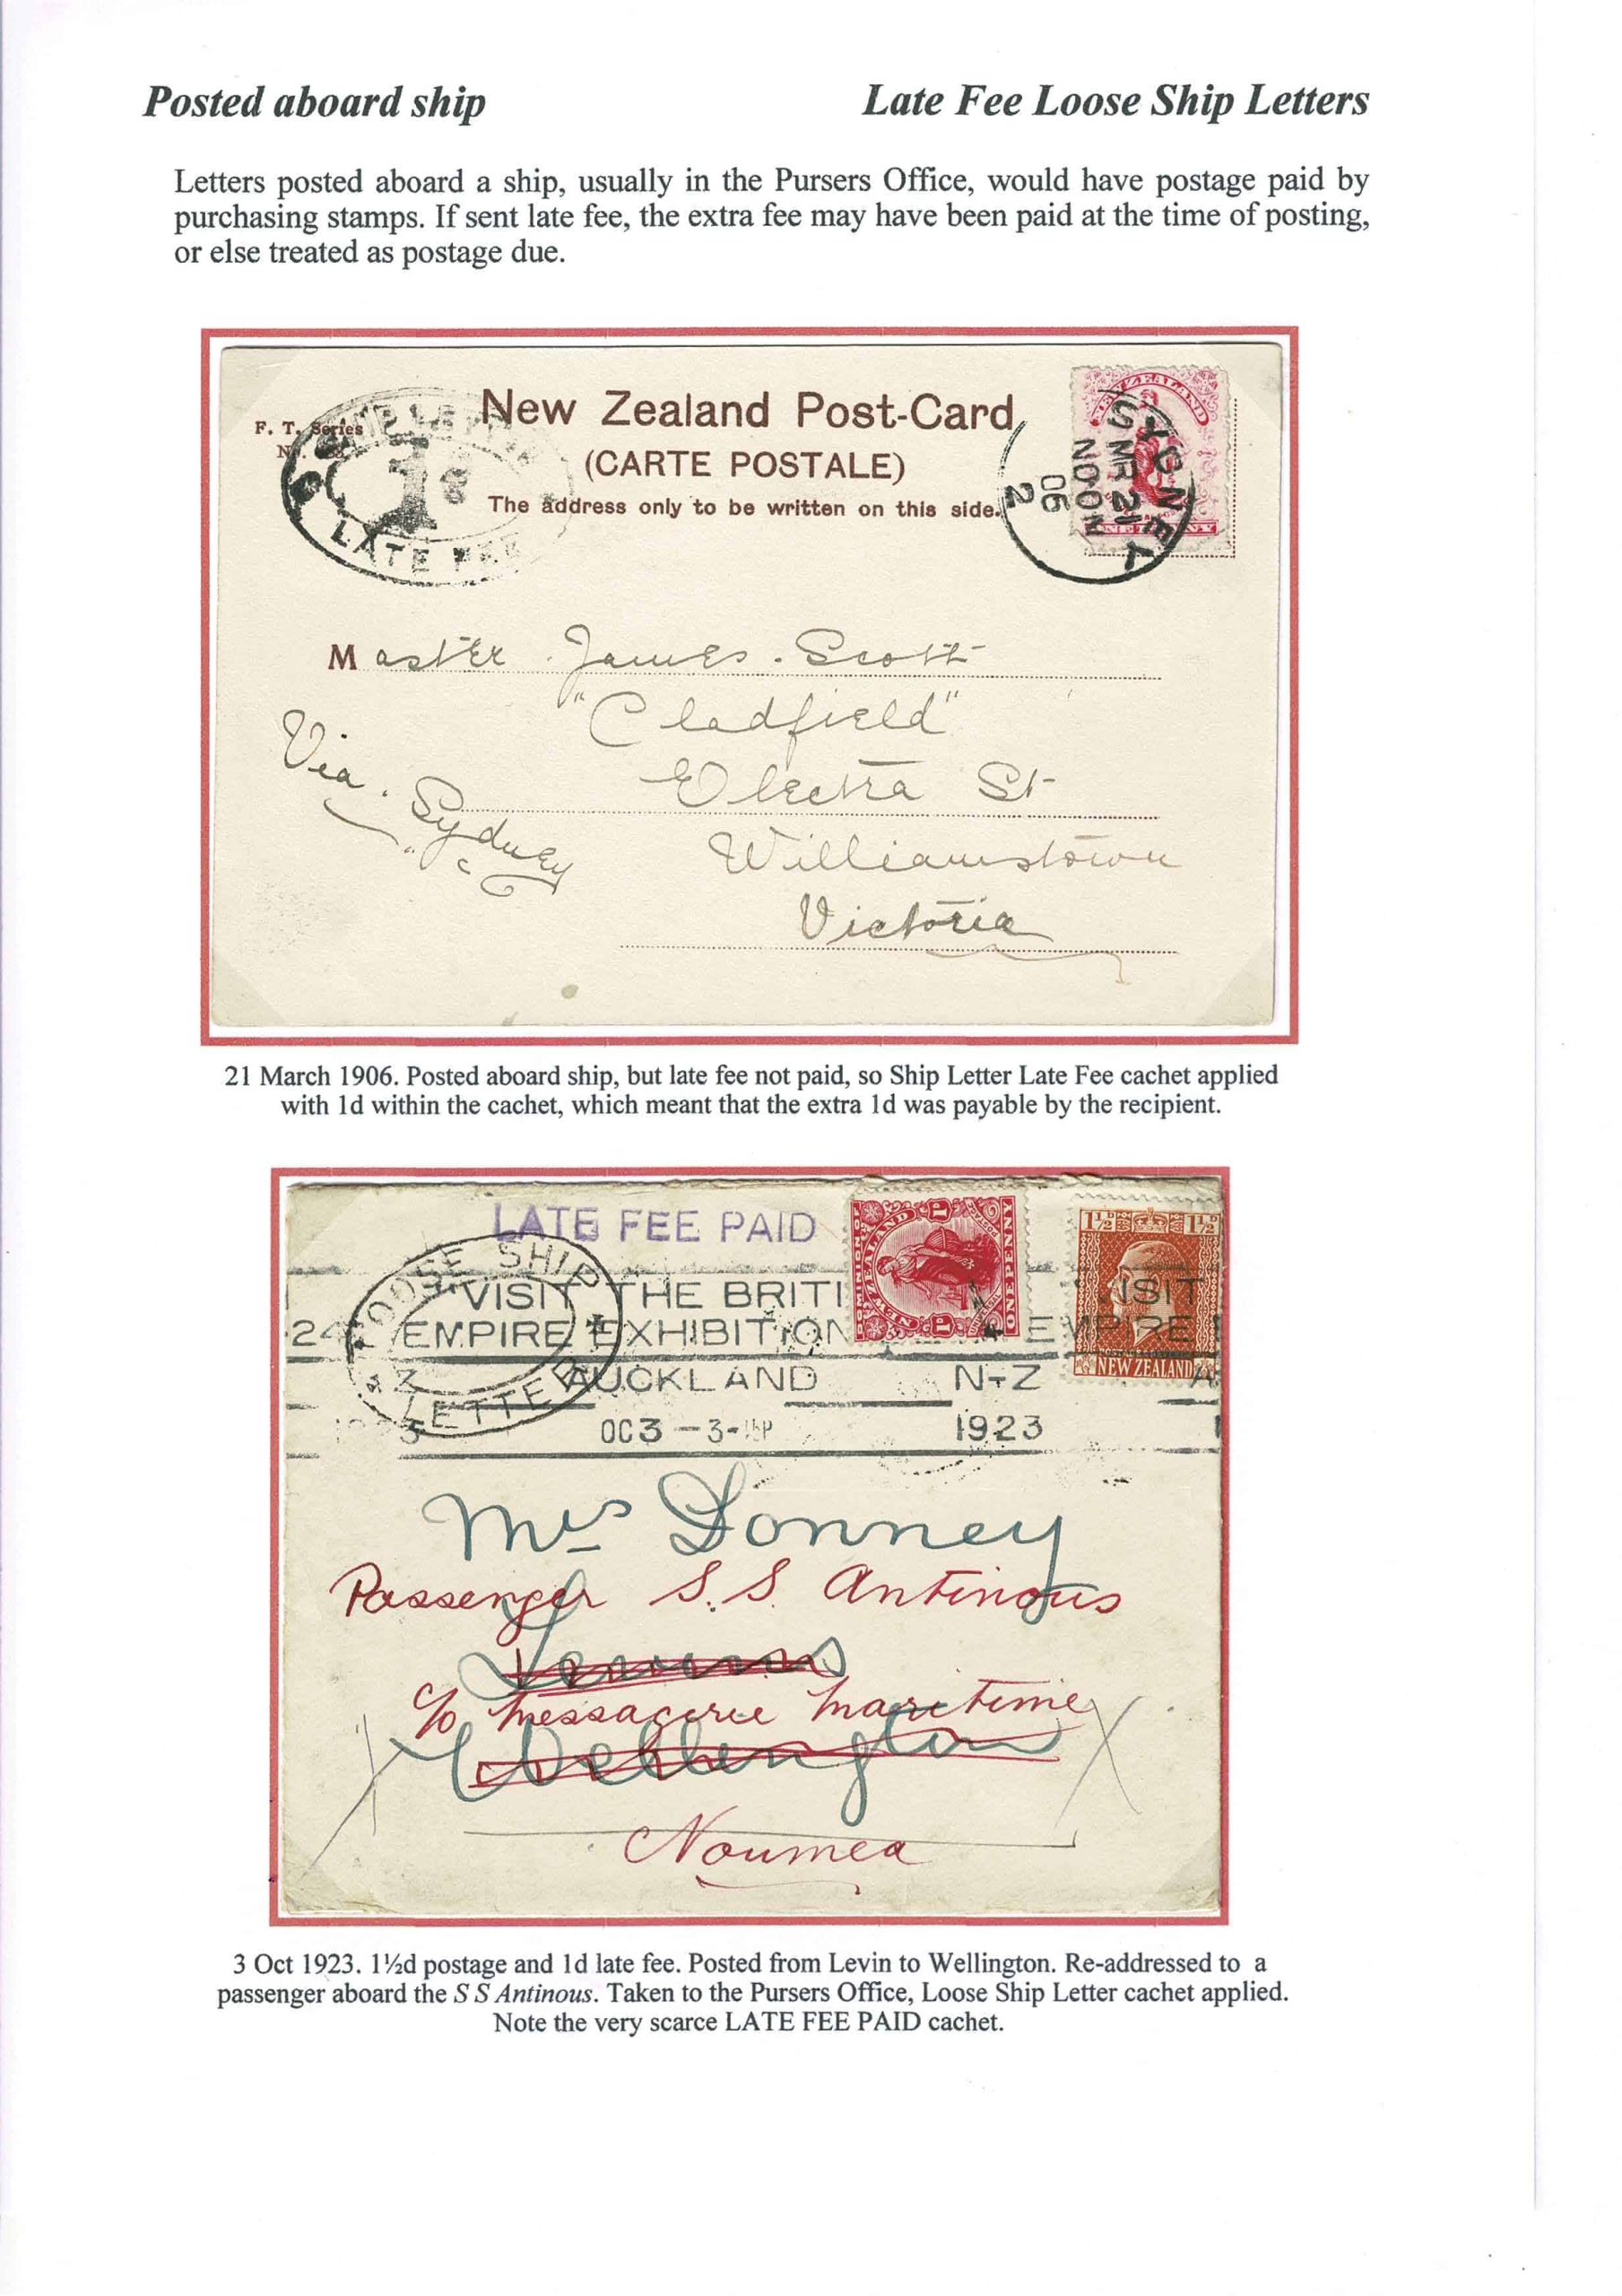 Posted aboard ship
Late Fee Loose Ship Letters
Letters posted aboard a ship, usually in the Pursers Office, would have postage paid by
purchasing stamps. If sent late fee, the extra fee may have been paid at the time of posting,
or else treated as postage due.
New Zealand Post-Card
F. T. Series
(CARTE POSTALE)
The address only to be written on this side.
LATE FEE
SYDNEY
MR 21
NOON
06
2
Master James Scott
"Cladfield"
Electra St
Via Sydney
Williamstown
Victoria
21 March 1906. Posted aboard ship, but late fee not paid, so Ship Letter Late Fee cachet applied
with 1d within the cachet, which meant that the extra 1d was payable by the recipient.
LATE FEE PAID
LOOSE SHIP
LETTER
VISIT THE BRITI
EMPIRE EXHIBITION
AUCKLAND N-Z
OC 3 - 3- 1923
DOMINION OF NEW ZEALAND
ONE PENNY
1½D 1½D
ISIT
EMPIRE
NEW ZEALAND
Mrs Donney
Passenger S.S. Antinous
c/o Messagerie Maritime
Wellington
Noumea
3 Oct 1923. 1½d postage and 1d late fee. Posted from Levin to Wellington. Re-addressed to a
passenger aboard the S S Antinous. Taken to the Pursers Office, Loose Ship Letter cachet applied.
Note the very scarce LATE FEE PAID cachet.